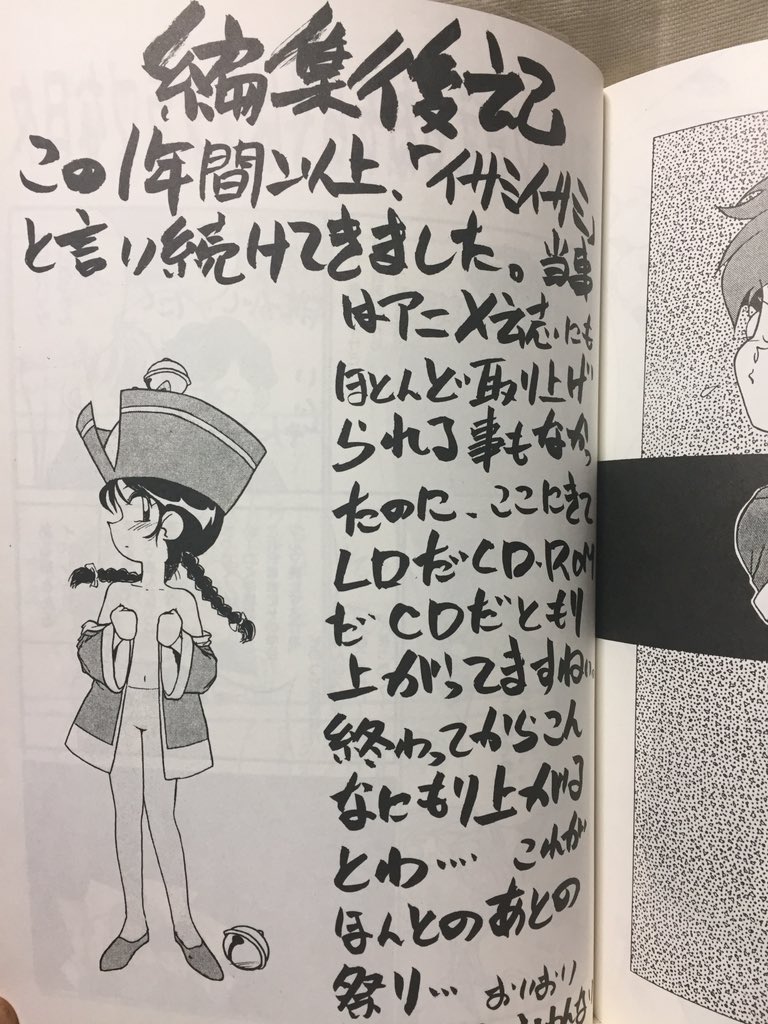 編集後記
この1年間以上、「イサミイサミ」
と言い続けてきました。当事
はアニメ誌にも
ほとんど取り上げ
られる事もなかっ
たのに、ここにきて
LDだCD-ROM
だCDだともり
上がってますねい。
終わってからこん
なにもり上がる
とわ… これが
ほんとのあとの
祭り… おいおい